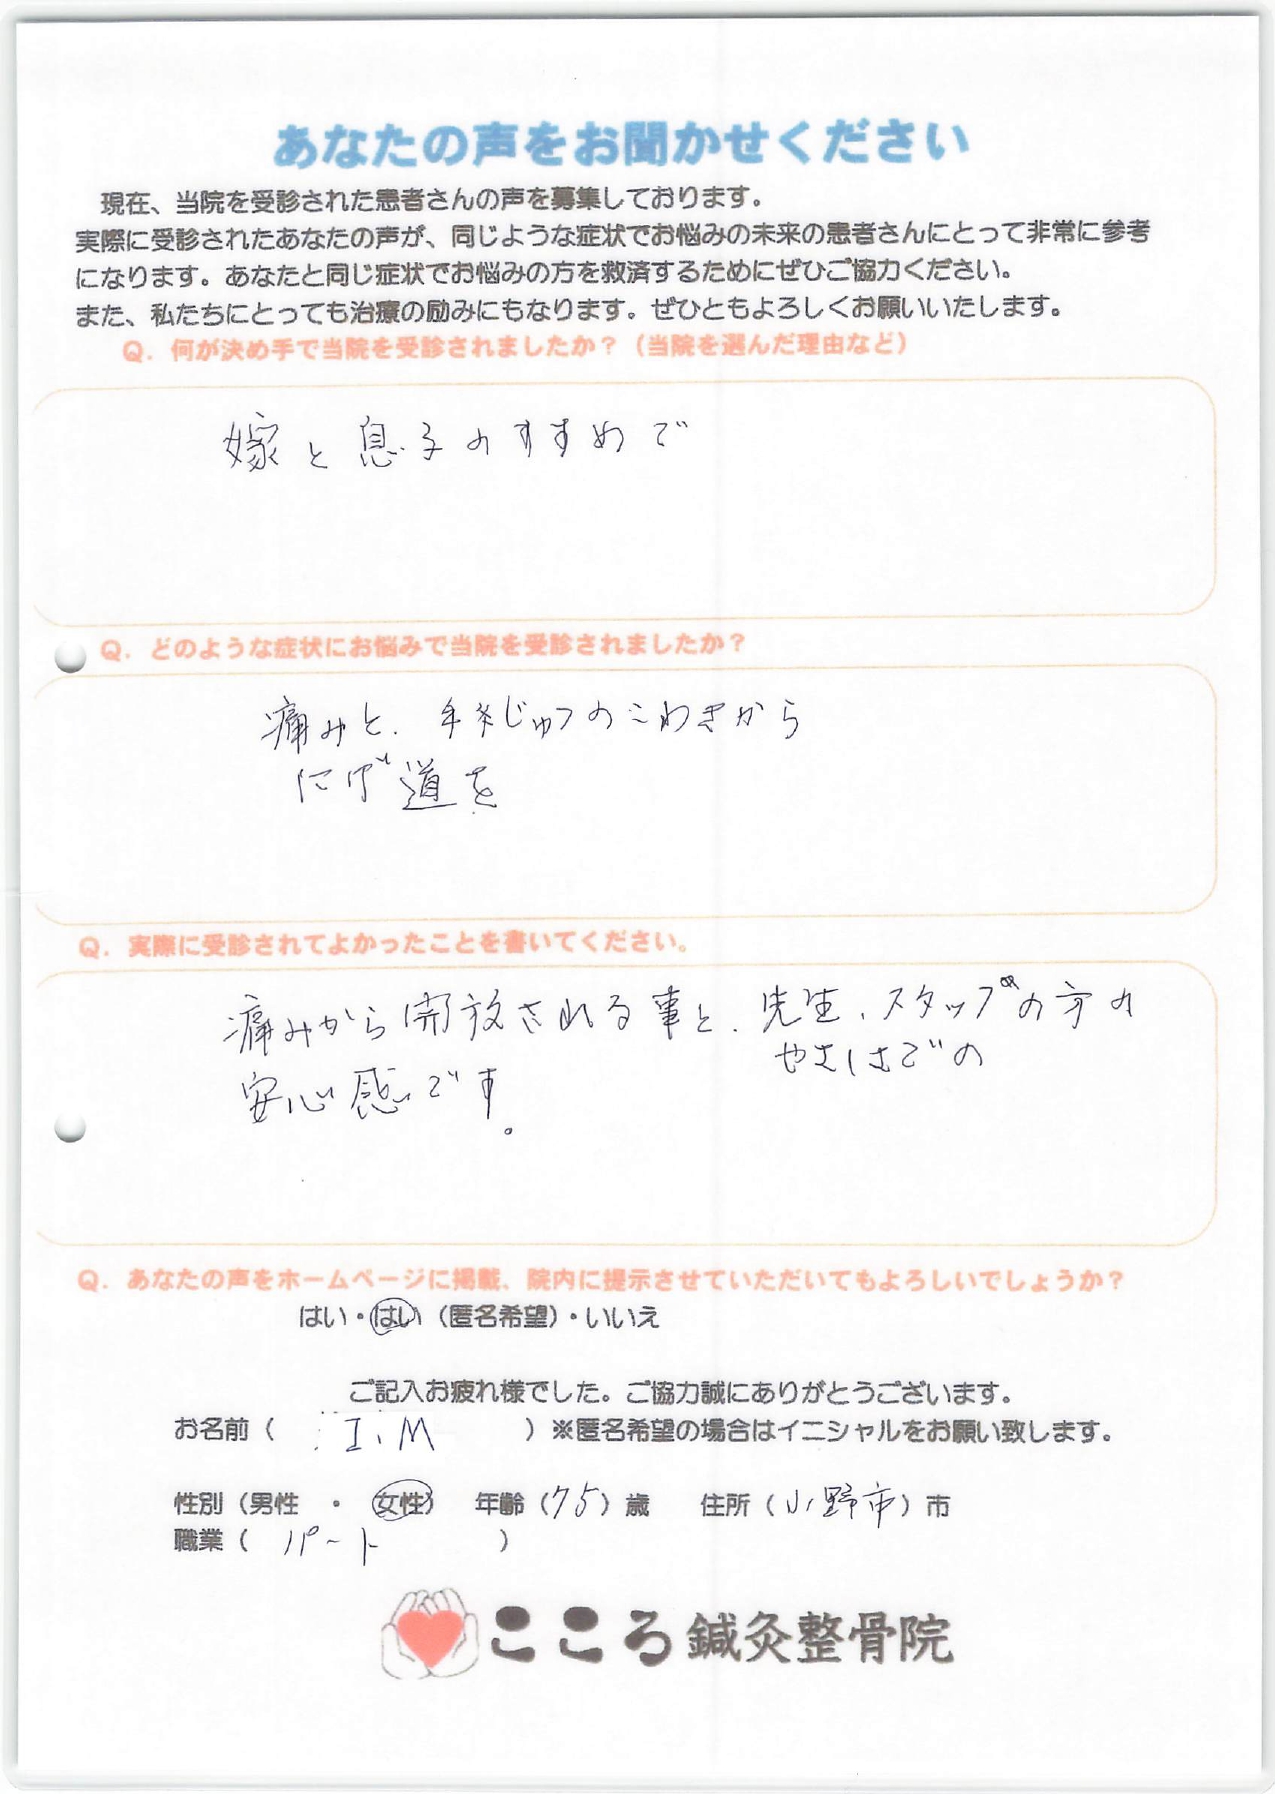 あなたの声をお聞かせください
現在、当院を受診された患者さんの声を募集しております。
実際に受診されたあなたの声が、同じような症状でお悩みの未来の患者さんにとって非常に参考
になります。あなたと同じ症状でお悩みの方を救済するためにぜひご協力ください。
また、私たちにとっても治療の励みにもなります。ぜひともよろしくお願いいたします。
Q. 何が決め手で当院を受診されましたか？（当院を選んだ理由など）
嫁と息子のすすめで
Q. どのような症状にお悩みで当院を受診されましたか？
痛みと、手術じゅつのこわさから
にげ道を
Q. 実際に受診されてよかったことを書いてください。
痛みから開放される事と、先生、スタッフの方の
やさしさでの
安心感です。
Q. あなたの声をホームページに掲載、院内に提示させていただいてもよろしいでしょうか？
はい・はい（匿名希望）・いいえ
ご記入お疲れ様でした。ご協力誠にありがとうございます。
お名前（ I.M ）※匿名希望の場合はイニシャルをお願い致します。
性別（男性 ・ 女性） 年齢（75）歳 住所（小野市）市
職業（ パート ）
こころ鍼灸整骨院